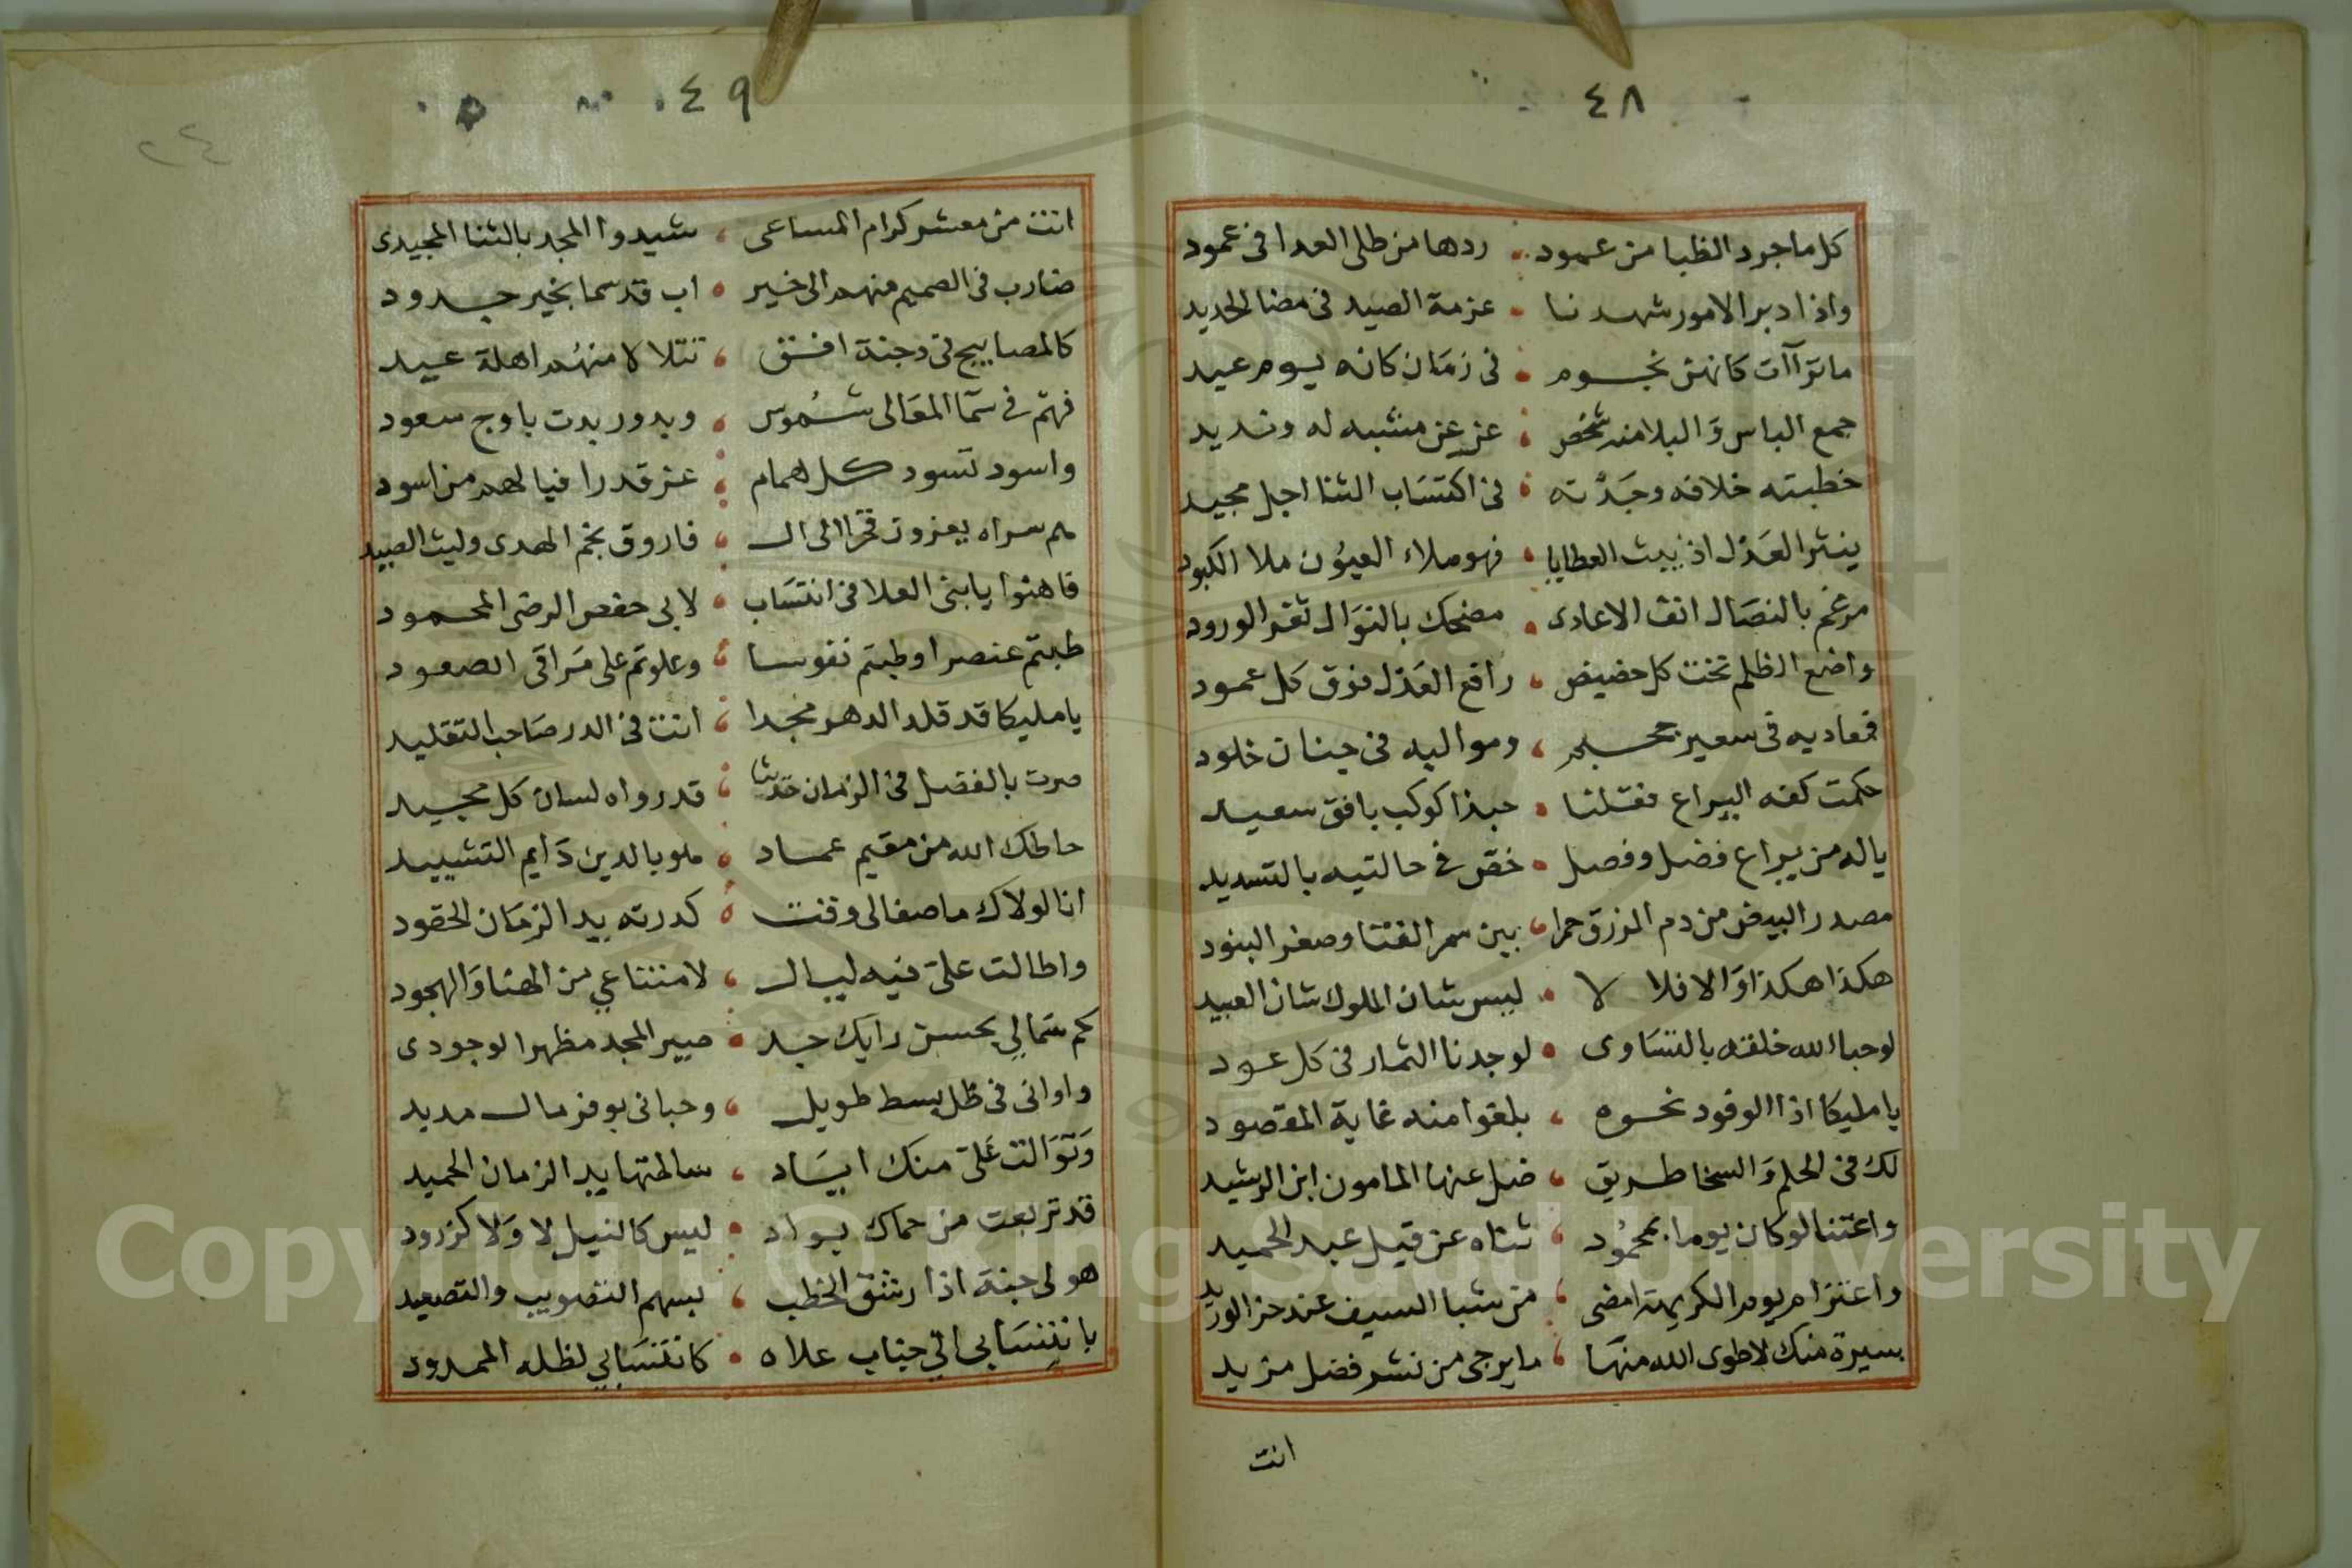 ٤٨
كل ما جرد الظبا من عمود ردها من طلى العدا فى غمود
واذا دبر الامور شهدنا عزمة الصيد فى مضا الحديد
ما تراآت كانهن نجوم فى زمان كانه يوم عيد
جمع الباس و منه شخص عز عن مشبه له ونديد
خطبته خلافه وجدته فى اكتساب الثنا اجل مجيد
ينثر العدل اذ يبث العطايا فهو ملاء العيون ملا الكبود
مرغم بالنصال انف الاعادى مضحك بالنوال ثغر الورود
واضع الظلم تحت كل حضيض رافع العدل فوق كل عمود
فمعاديه فى سعير جحيم ومواليه فى جنان خلود
حكمت كفه اليراع فقلنا حبذا كوكب بافق سعيد
ياله من يراع فضل وفصل خص فى حالتيه بالتسديد
مصدر البيض من دم الزرق حمرا بين سمر القنا وصفر البنود
هكذا هكذا والا فلا لا ليس شان الملوك شان العبيد
لو حبا الله خلقه بالتساوى لوجدنا الثمار فى كل عود
يا مليكا اذا الوفود نحوه بلغوا منه غاية المقصود
لك فى الحلم والسخا طريق ضل عنها المامون ابن الرشيد
واعتنا لو كان يوما بمحمود ثناه عن قيل عبد الحميد
واعتزام يوم الكريهة امضى من شبا السيف عند حز الوريد
بسيرة منك لا طوى الله منها ما يرجى من نشر فضل مزيد
انت
٤٩
٢٤
انت من معشر كرام المساعى شيدوا المجد بالثنا المجيدى
ضارب فى الصميم منهم الى خير اب قد سما بخير جدود
كالمصابيح فى دجنة افق تتلالا منهم اهلة عيد
فهم فى سما المعالى شموس وبدور بدت باوج سعود
واسود تسود كل همام عز قدرا فيا لهم من اسود
هم سراه يعزون فخرا الى ال فاروق نجم الهدى وليث الصيد
فاهنوا يا بنى العلا فى انتساب لابى حفص الرضى المحمود
طبتم عنصرا وطبتم نفوسا وعلوتم على مراقى الصعود
يا مليكا قد قلد الدهر مجدا انت فى الدر صاحب التقليد
صرت بالفضل فى الزمان حديثا قد رواه لسان كل مجيد
حاطك الله من مقيم عماد هو بالدين دايم التشييد
انا لولاك ما صفا لى وقت كدرته يد الزمان الحقود
واطالت على فيه ليال لامتناعي من الهنا والهجود
كم سما لي بحسن رايك جد صير المجد مظهرا لوجودى
واوانى فى ظل بسط طويل وحبانى بوفر مال مديد
وتوالت على منك اياد سالمتها يد الزمان الحميد
قد تربعت من حماك بواد ليس كالنيل لا ولا كزرود
هو لى جنة اذا رشق الخطب بسهم التصويب والتصعيد
بانتسابى الى جناب علاه كانتسابي لظله الممدود